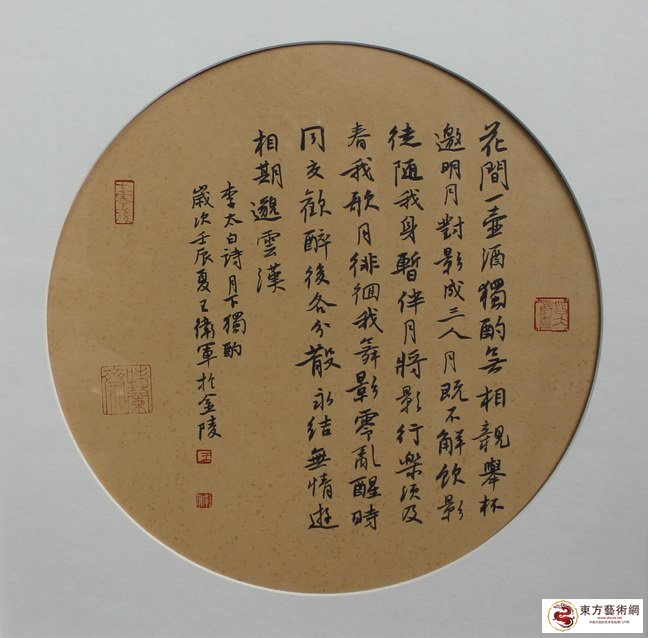 花間一壺酒獨酌無相親舉杯
邀明月對影成三人月既不解飲影
徒隨我身暫伴月將影行樂須及
春我歌月徘徊我舞影零亂醒時
同交歡醉後各分散永結無情遊
相期邈雲漢
李太白詩月下獨酌
歲次壬辰夏王衛軍於金陵
東方藝術網